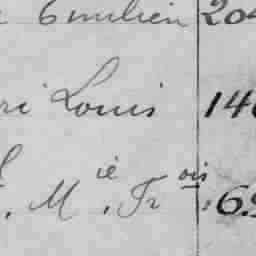 Emilien 204
ri Louis 146
. Mie. Frois 169